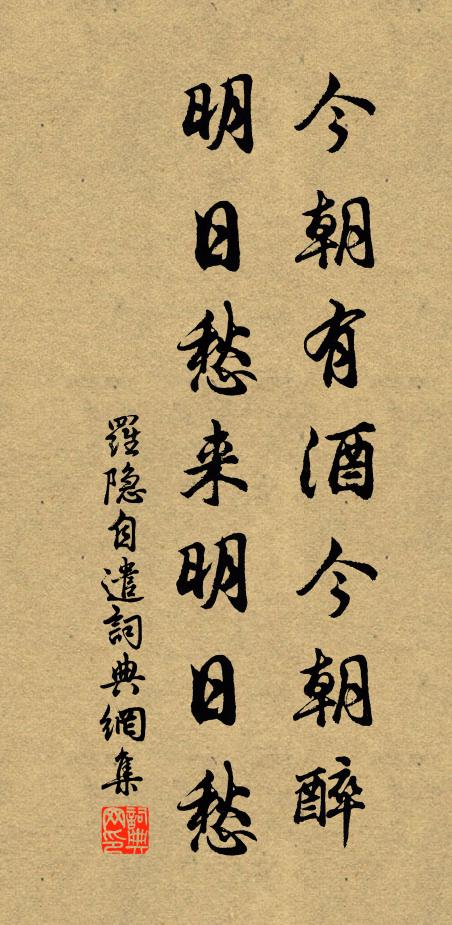 今朝有酒今朝醉
明日愁来明日愁
羅隐自遣詞典網集
詞典网印